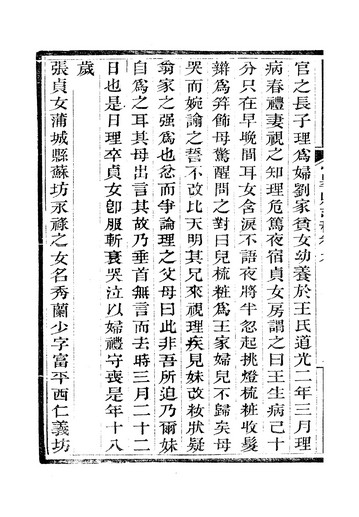 官之長子理為婦劉家貧女幼養於王氏道光二年三月理
病春禮妻視之知理危篤夜宿貞女房謂之曰王生病已十
分只在早晚間耳女含淚不語夜將半忽起挑燈梳粧收髮
辮為笄飾母驚醒問之對曰兒梳粧為王家婦兒不歸矣母
哭而婉諭之誓不改比天明其兄來視理疾見妹改妝狀疑
翁家之強為也忿而爭論理之父母曰此非吾所迫乃爾妹
自為之耳其母出言其故乃垂首無言而去時三月二十二
日也是日理卒貞女卽服斬衰哭泣以婦禮守喪是年十八
歲
張貞女蒲城縣蘇坊永祿之女名秀蘭少字富平西仁義坊